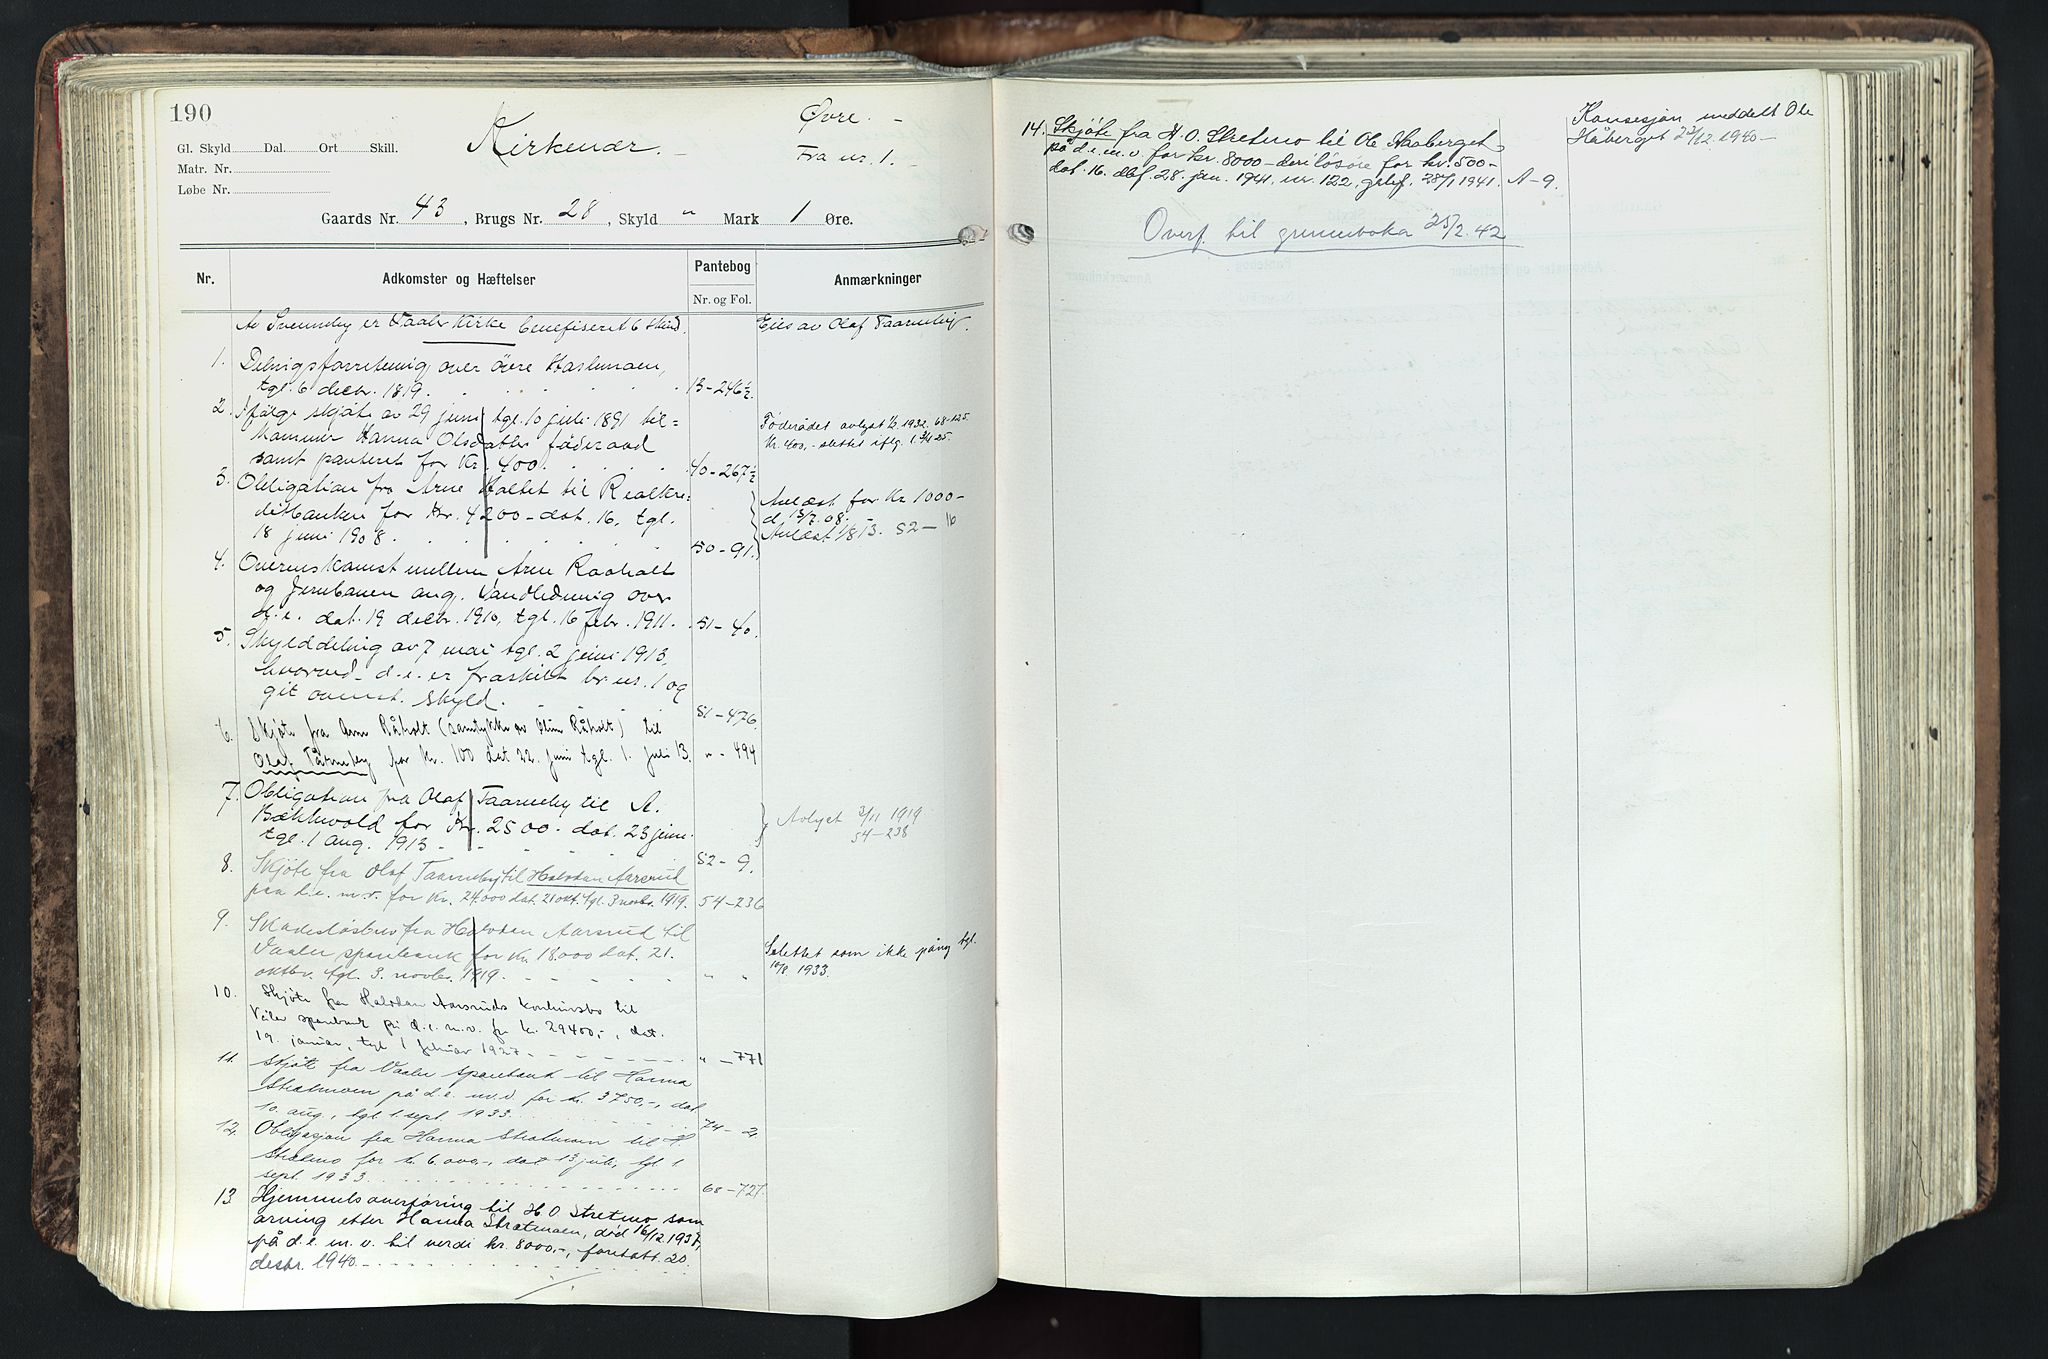 190
Gl. Skyld Dal. Ort Skill.
Matr. Nr.
Løbe Nr.
Kirkenær.
Øvre. –
Fra nr. 1. –
Gaards Nr. 43, Brugs Nr. 28, Skyld " Mark 1 Øre.
Nr. Adkomster og Hæftelser Pantebog Anmærkninger
Nr. og Fol.
Av Svenneby er Vaaler Kirke beneficeret 6 skind. Eies av Olaf Taarneby.
1. Delingsforretning over övre Haslemoen,
tgl. 6 decbr. 1819. 13-246½
2. Ifølge skjöte av 29 juni tgl. 10 juli 1891 til=
kommer Hanna Olsdatter föderaad
samt panteret for Kr. 400. 40-267½
Föderådet avlyst 1932. 68-125.
Kr. 400,- slettet iflg. l.
3. Obligation fra Arne Holtet til Realkre=
ditbanken for Kr. 4200- dat. 16, tgl.
18 juni 1908. 50-91.
Avlæst for Kr 1000-
d. 13/7.08. -
Avlæst 1/8 13. 52-16
4. Overenskomst mellem Arne Raaholt
og Jernbanen ang. Vandledning over
d.e. dat. 19 decbr. 1910, tgl. 16 febr. 1911. 51-40.
5. Skylddeling av 7 mai tgl. 2 juni 1913,
hvorved d.e. er fraskilt br.nr. 1 og
git ovenst. skyld. 51-476
6. Skjöte fra Arne Råholt (samtykke av Oline Råholt) til
Olaf Tårneby for Kr. 100 dat 22. juni tgl. 1. juli 13. " - 494
7. Obligation fra Olaf Taarneby til A.
Bækkevold for Kr. 2500- dat. 23 juni
tgl. 1 aug. 1913 - 52-9.
Avlyst 3/11 1919
54-238
8. Skjöte fra Olaf Taarneby til Halvdan Aarsrud
paa d.e. m.v. for Kr. 24.000 dat. 21 okt. tgl. 3 novbr. 1919. 54-236
9. Skadeslösbrev fra Halvdan Aarsrud til
Vaaler sparebank for Kr. 18.000 dat. 21.
oktbr. tgl. 3. novbr. 1919. " "
Slettet som ikke pång tgl.
1933.
10. Skjöte fra Halvdan Aarsruds konkursbo til
Våler sparebank på d.e. m.v. for kr. 29400,-, dat.
19. januar, tgl 1 februar 1927 - " - 771
11. Skjöte fra Vaaler sparebank til Hanna
Strætmoen på d.e. m.v. for kr. 3750,-, dat
10. aug., tgl 1. sept. 1933. 74-2.
12. Obligasjon fra Hanna Strætmoen til H.
Strætmo for kr. 6.000,-, dat 13 juli, tgl 1.
sept. 1933. 68-727.
13. Hjemmelsoverföring til H O Stretmo som
arving etter Hanna Strætmoen, död 16/12 1937,
på d.e. m.v. til verdi kr. 8000,-, foretatt 20.
desbr. 1940. -
14. Skjöte fra H. O. Stretmo til Ole Haaberget
på d.e. m.v. for kr. 8000- deri lösöre for kr. 500-
dat. 16. dbf. 28. jan. 1941. nr. 122, gslyf. 28/1 1941. A-9.
Konsesjon meddelt Ole
Håberget 23/12. 1940 -
Overf. til grunnboka 25/2. 42